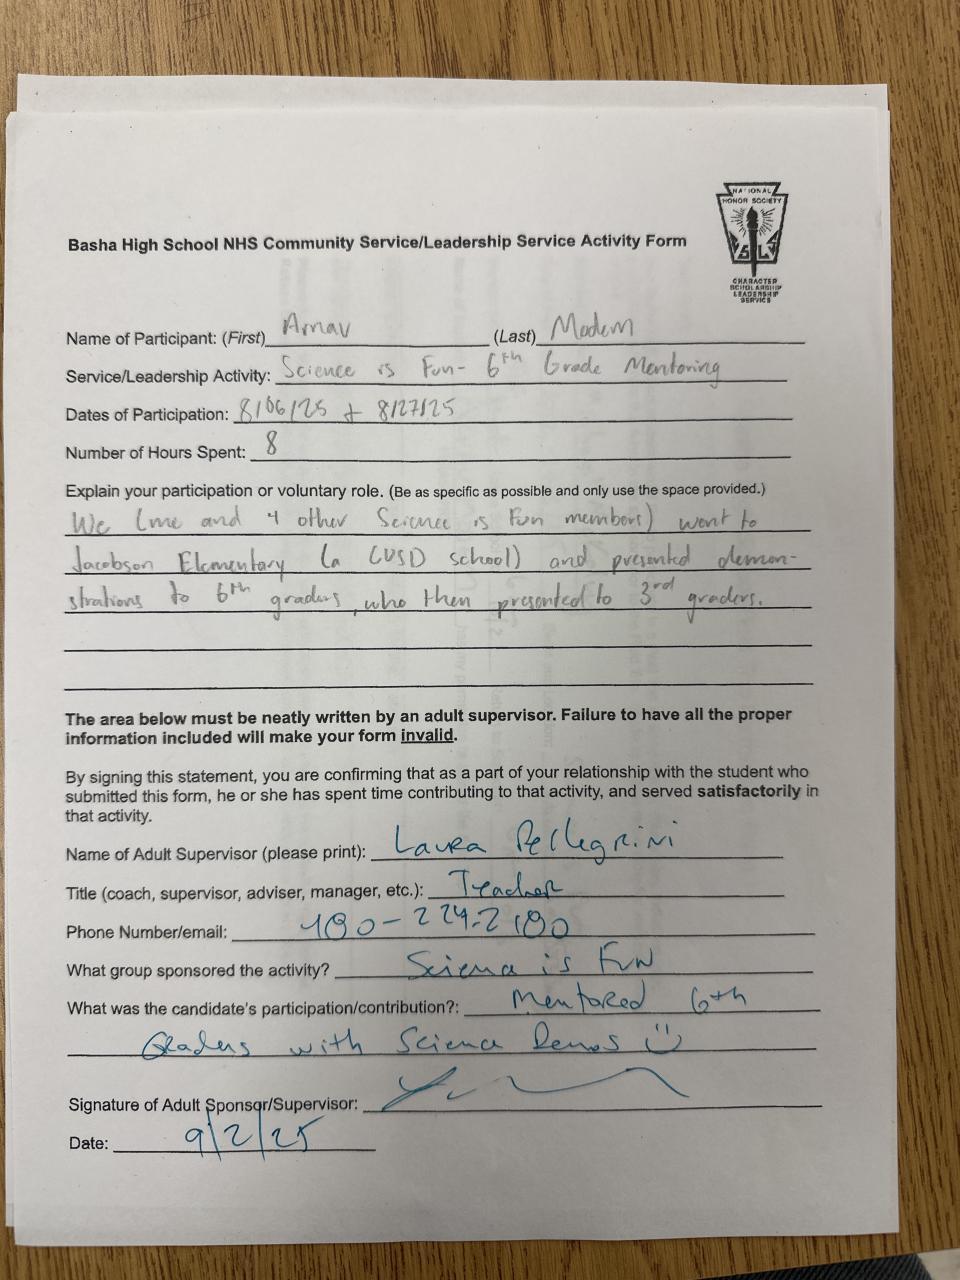 NATIONAL
HONOR SOCIETY
S L
CHARACTER
SCHOLARSHIP
LEADERSHIP
SERVICE
Basha High School NHS Community Service/Leadership Service Activity Form
Name of Participant: (First) Arnav (Last) Modem
Service/Leadership Activity: Science is Fun- 6th Grade Mentoring
Dates of Participation: 8/06/25 + 8/27/25
Number of Hours Spent: 8
Explain your participation or voluntary role. (Be as specific as possible and only use the space provided.)
We (me and 4 other Science is Fun members) went to
Jacobson Elementary (a CUSD school) and presented demon-
strations to 6th graders, who then presented to 3rd graders.
The area below must be neatly written by an adult supervisor. Failure to have all the proper
information included will make your form invalid.
By signing this statement, you are confirming that as a part of your relationship with the student who
submitted this form, he or she has spent time contributing to that activity, and served satisfactorily in
that activity.
Name of Adult Supervisor (please print): Laura Pellegrini
Title (coach, supervisor, adviser, manager, etc.): Teacher
Phone Number/email:
What group sponsored the activity? Science is Fun
What was the candidate's participation/contribution?: Mentored 6th
Graders with Science Demos
Signature of Adult Sponsor/Supervisor:
Date: 9/2/25